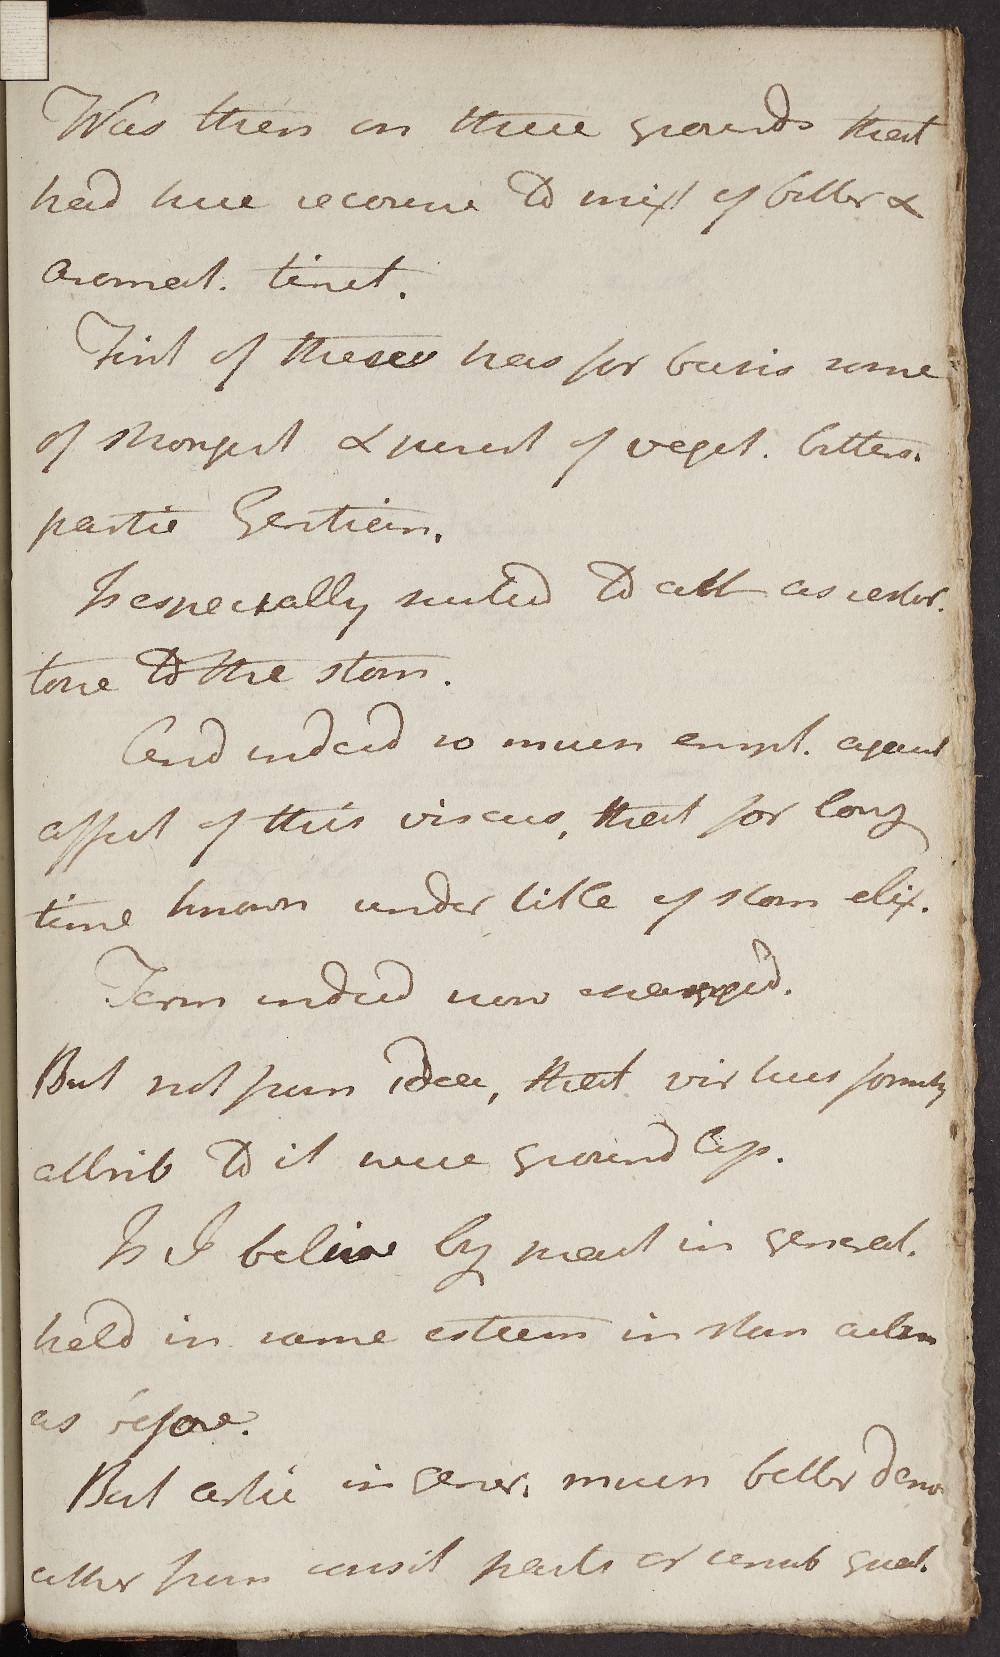 Was then on these grounds that
had here recourse to mixt of bitter &
aromat. tinct.
First of these has for basis some
of strongest & purest of veget. bitters.
partic Gentian.
Is especially suited to act as restor.
tone to the stom.
And indeed so much empl. against
affect of this viscus, that for long
time known under title of stom elix.
Term indeed now
But not from idea, that virtues formerly
attrib to it were groundless.
Is I believe by pract in general.
held in same esteem in stom
as before.
But artic in gener. much better deno
either from consit parts or sensib qual.